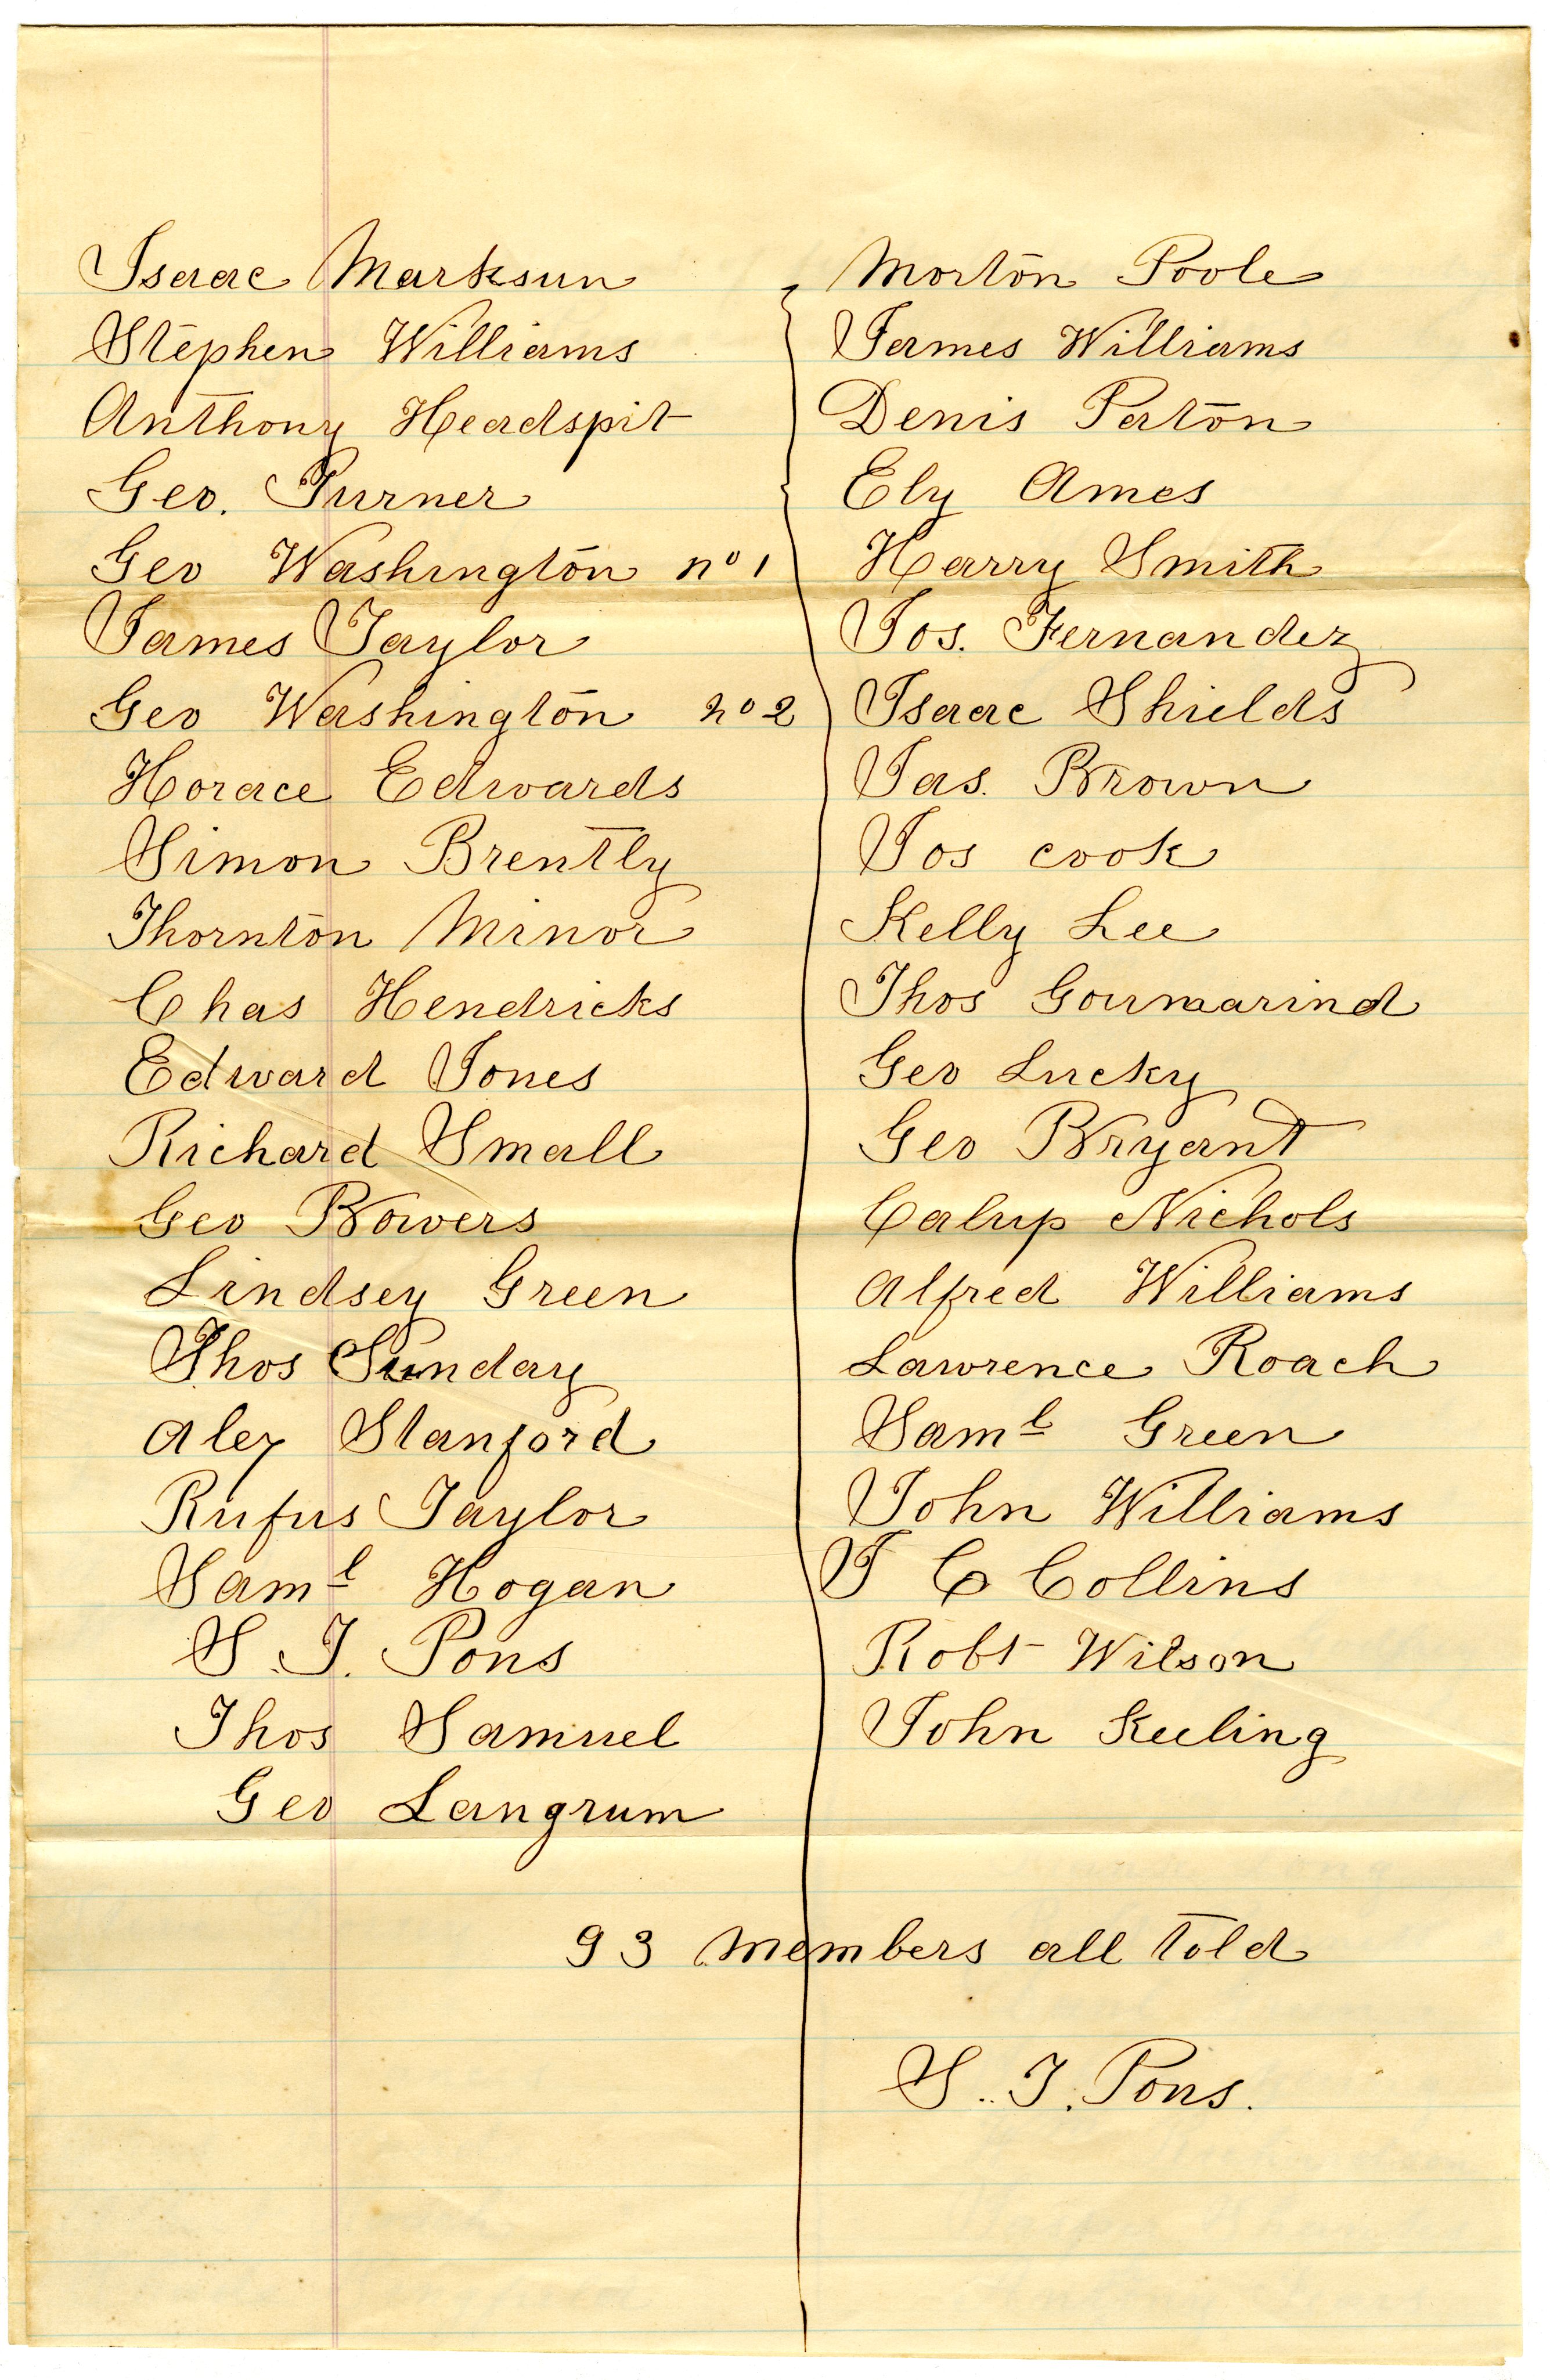 Isaac Marksun
Stephen Williams
Anthony Headspit
Geo. Turner
Geo Washington no 1
James Taylor
Geo Washington no 2
Horace Edwards
Simon Brently
Thornton Minor
Chas Hendricks
Edward Jones
Richard Small
Geo Bowers
Lindsey Green
Thos Sunday
Alex Stanford
Rufus Taylor
Saml Hogan
S. T. Pons
Thos Samuel
Geo Langrum
Morton Poole
James Williams
Denis Paton
Ely Ames
Harry Smith
Jos. Fernandez
Isaac Shields
Jas. Brown
Jos cook
Kelly Lee
Thos
Geo Lucky
Geo Bryant
Calup Nichols
Alfred Williams
Lawrence Roach
Saml Green
John Williams
J C Collins
Robt Wilson
John Keeling
93 members all told
S. T. Pons.